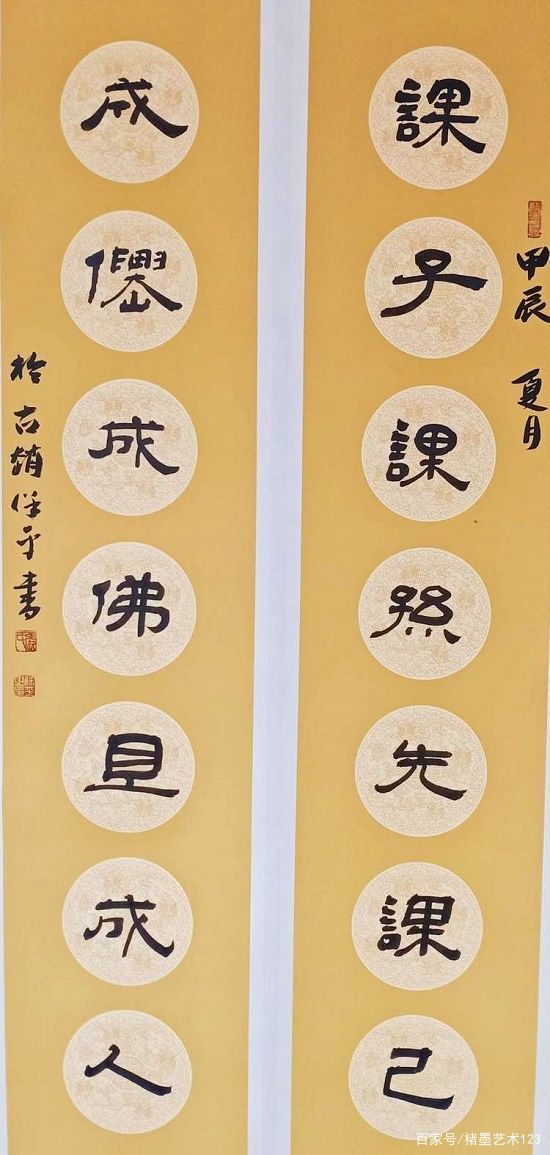 課子課孫先課己
甲辰 夏月
成僊成佛且成人
於古趙保平書
百家号/楮墨艺术123